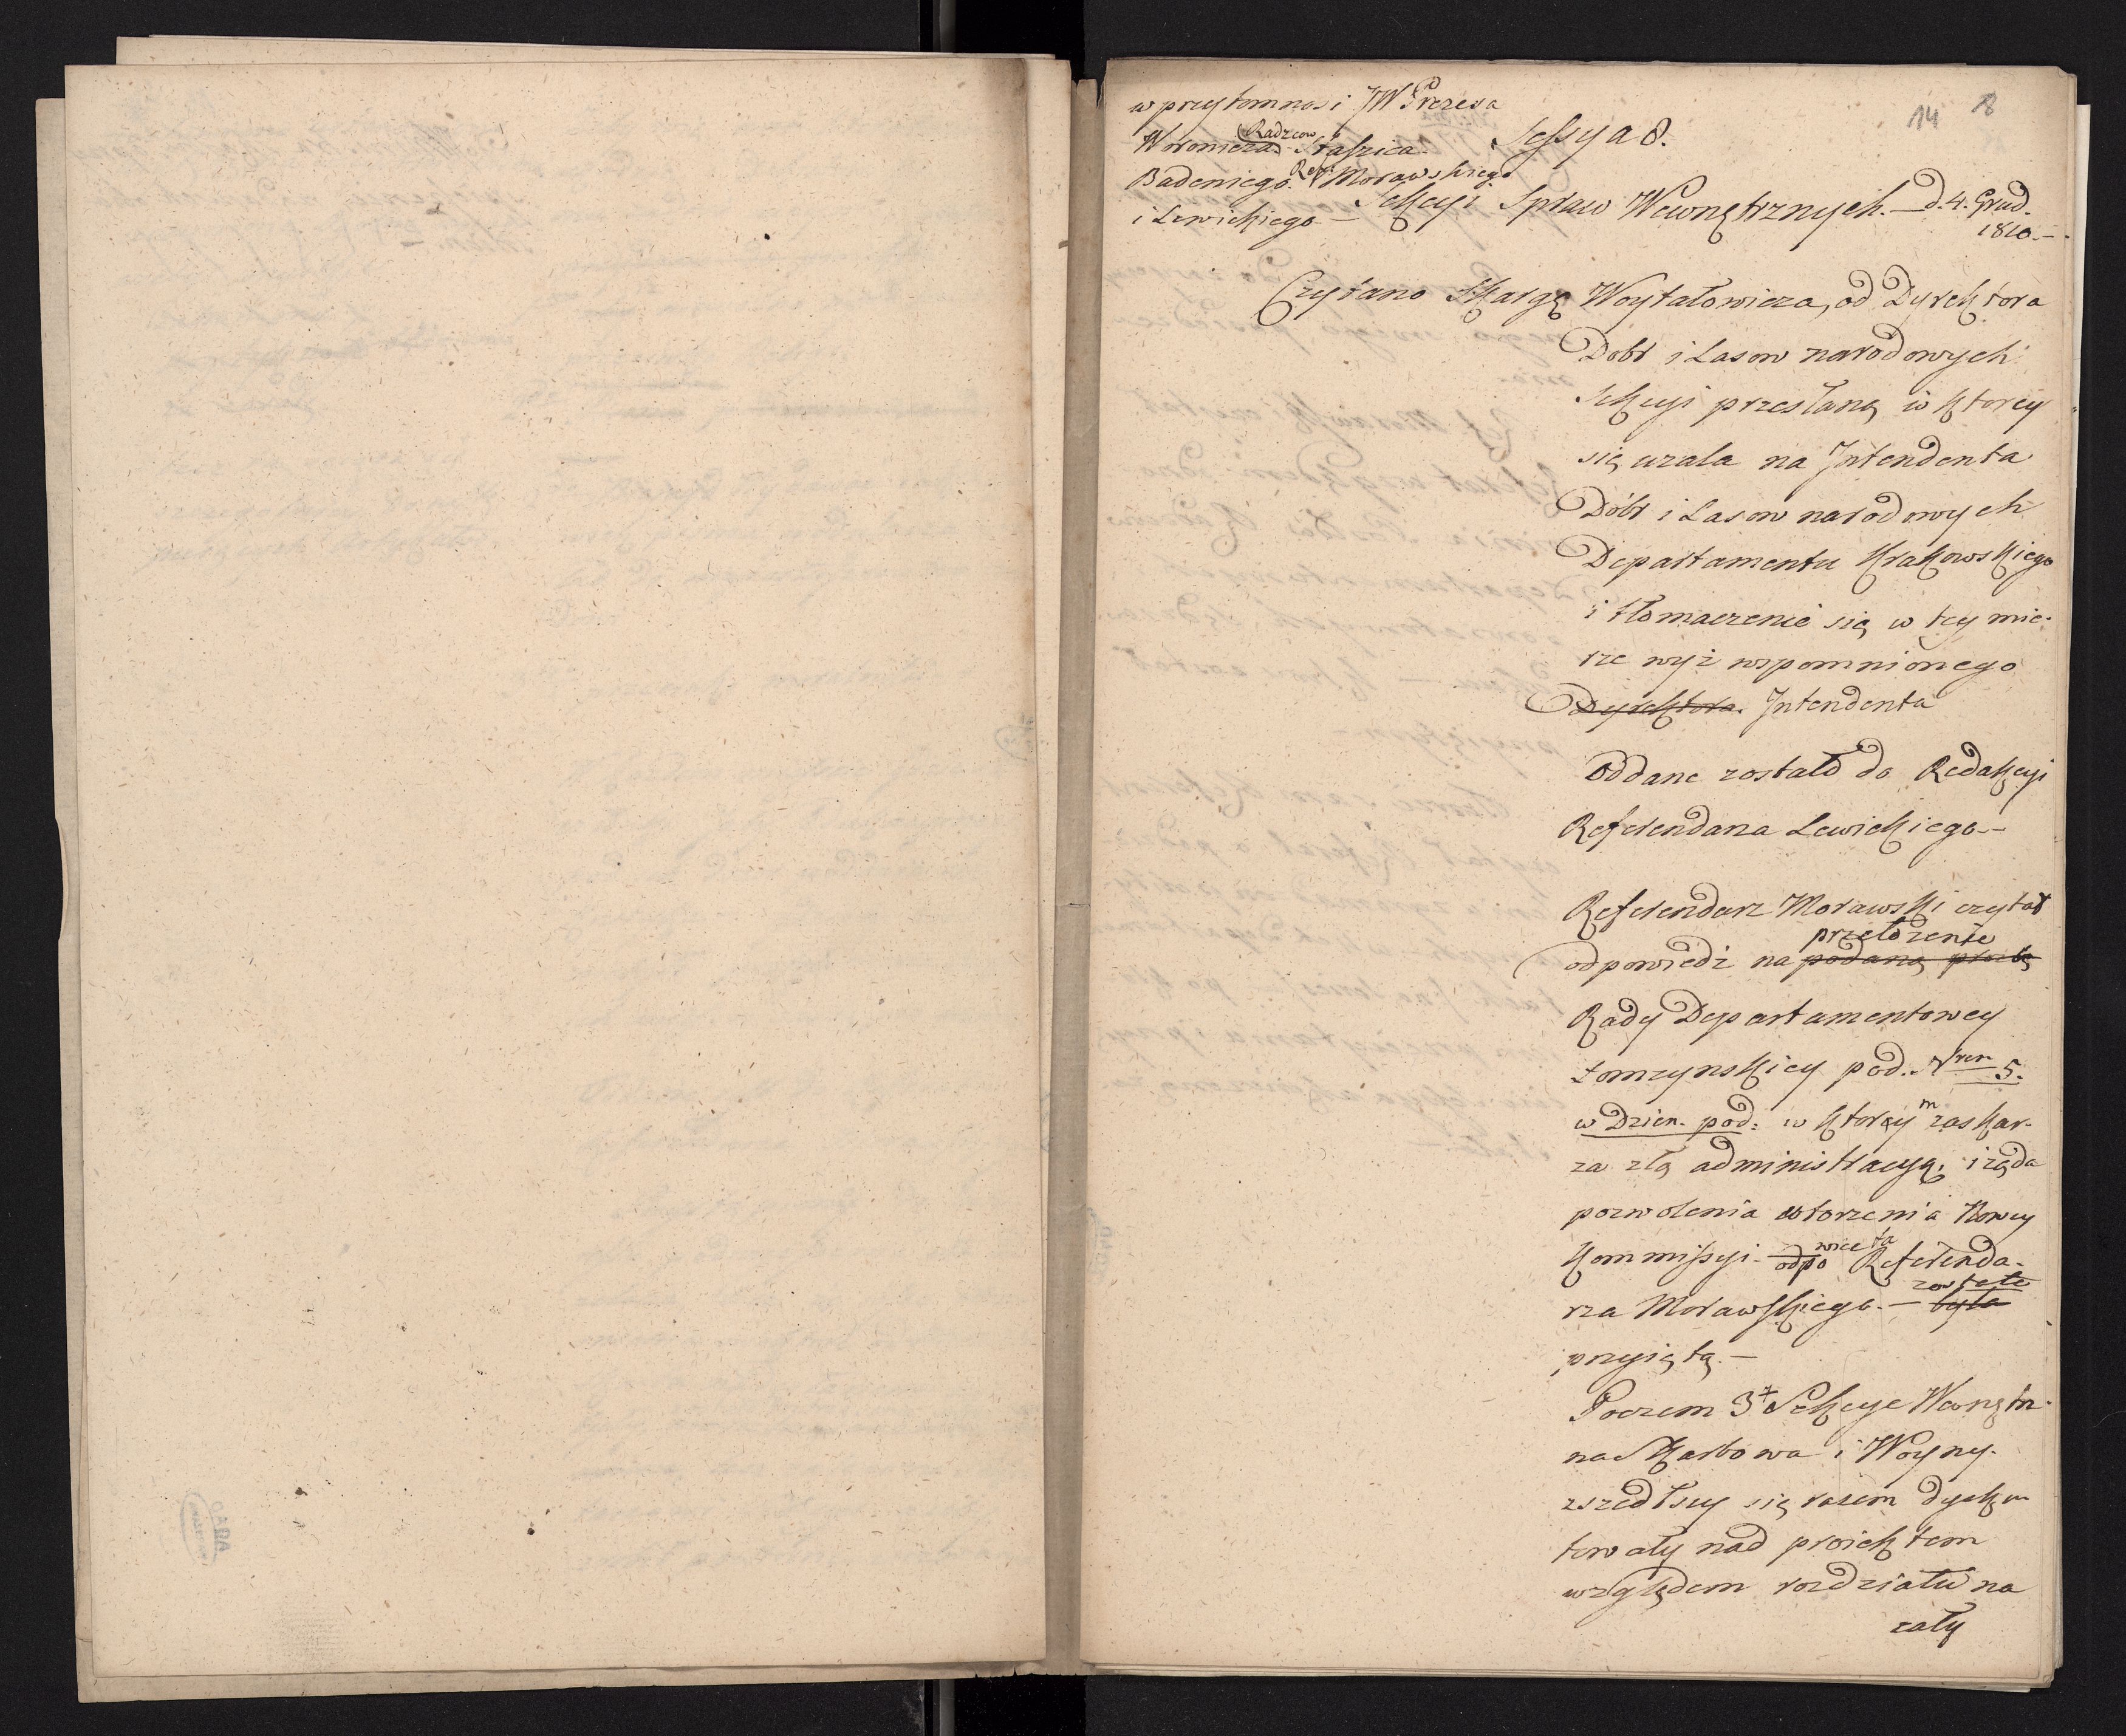 14 8
w przytomnosi JW Prezesa
Radzcow
Woronicza. Staszica.
Badeniego. Refr Morawskiego
i Lewickiego —
Sessya 8.
Sekcyi Spraw Wewnętrznych. — d. 4. Grud.
1810. —
Czytano skargę Woytałowicza, od Dyrektora
Dobr i Lasow narodowych
Sekcyi przesłaną w ktorey
się uzala na Intendenta
Dóbr i Lasow narodowych
Departamentu Krakowskiego
i tłomaczenie się w tey mie-
rze wyż wspomnionego
Dyrektora. Intendenta
Oddane zostało do Redakcyi
Referendarza Lewickiego. —
Referendarz Morawski czytał
przełożenie
odpowiedź na podaną prozbę
Rady Departamentowey
Łomzynskiey pod. Nrem 5.
w Dzien. pod: w ktorey m zaskar-
za złą administracyą, i ząda
pozwolenia utorzenia Nowey
wiedź ta
Kommissyi. — odpo Referenda-
zostałe
rza Morawskiego. — była
przyiętą. —
Poczem 3 Sekcye Wewnętrz-
na Skarbowa i Woyny.
zszedłszy się razem dysku-
towały nad proiektem
względem rozdziału na
cały